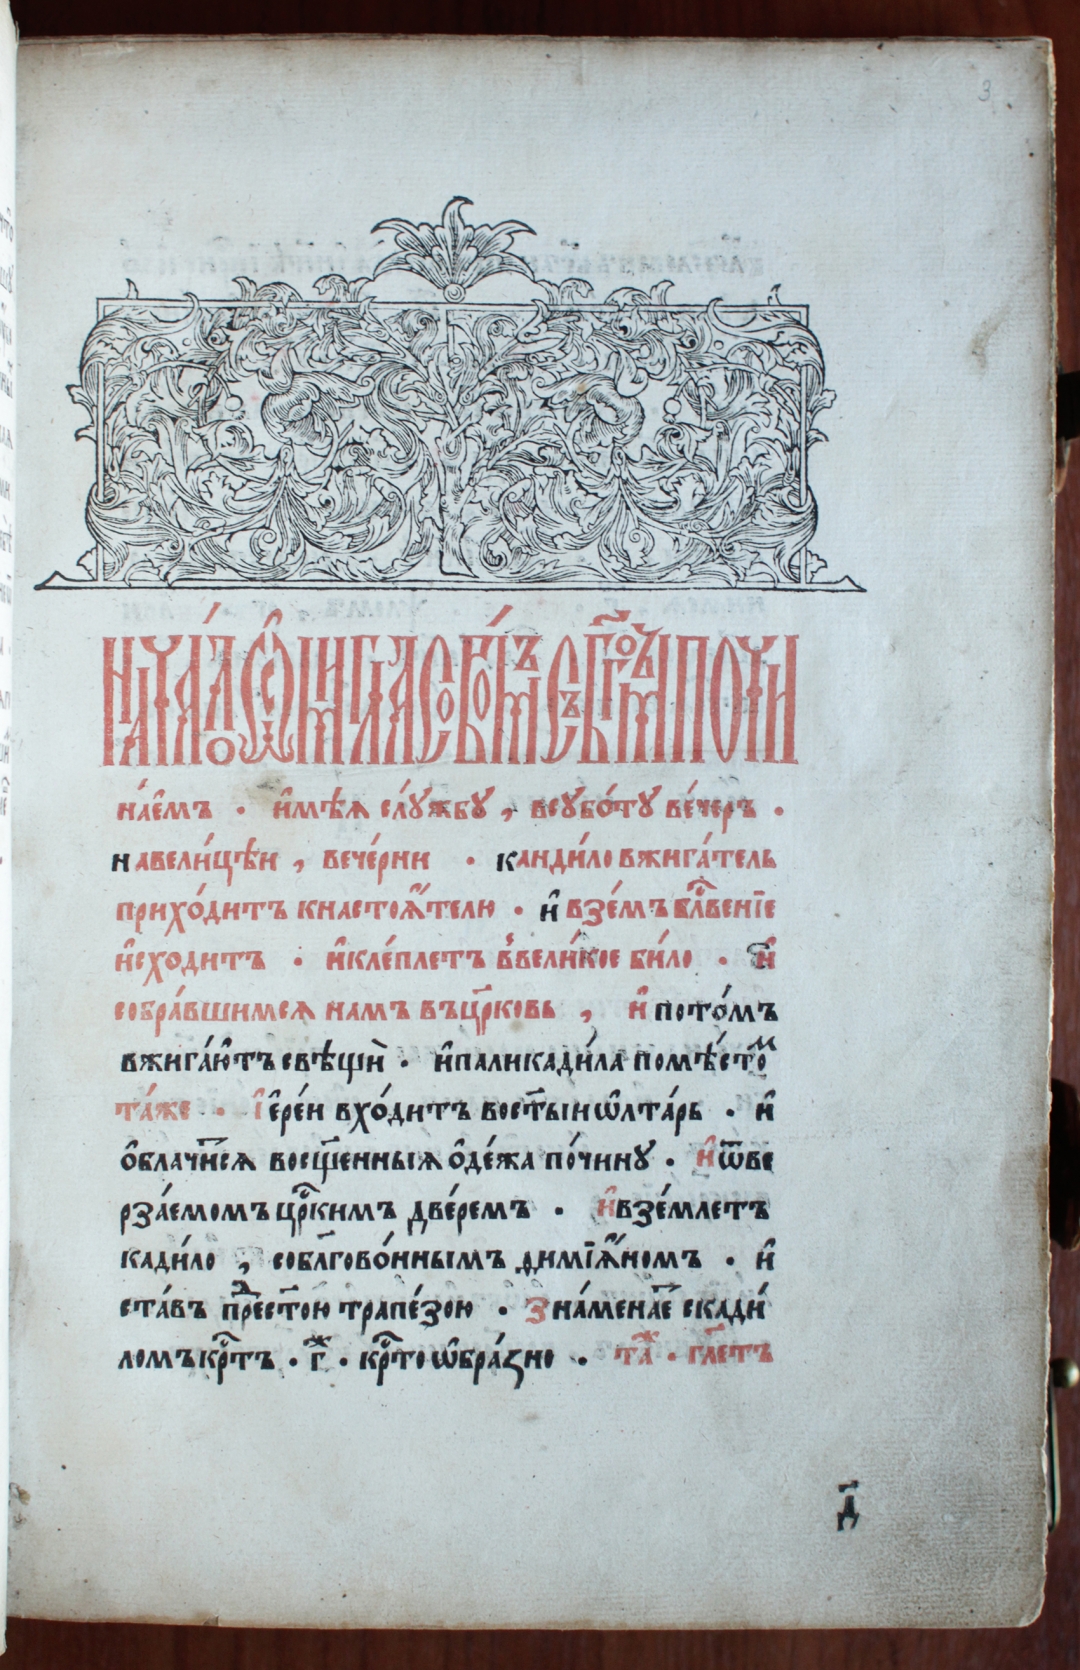 3
начало ѿ нигдасворѣмъ съ бг҃омъ почи
на́емъ · и҆мѣѧ слꙋ́жбꙋ , всꙋбо́тꙋ ве́черъ ·
навели́цѣи , вече́рни · кандило вжига́тель
прихо́дитъ кнастоѧ́телю · и҆ взе́мъ бл҃вениїе
и҆сходитъ · и҆кле́плетъ в̾вели́кое било · и҆
собра́вшимсѧ намъ въцр҃ковь , и҆ пото́мъ
вжига́ютъ свѣщѝ · и҆паликади́ла помѣ́стом
та́же · і҆ере́и вхо́дитъ вост҃ыи ѡ҆лта́рь · и҆
о҆блачи́сѧ восщ҃енныѧ о҆де́жа по́чинꙋ · и҆ ѿве
рза́емомъ цр҃кимъ две́ремъ · и҆ взе́млетъ
кади́ло , собл҃гово́ннымъ димїѧ́номъ · и҆
ста́въ прест҃ою трапе́зою · зна́менае скади́
ломъ крⷭ҇тъ · г҃ · крⷭ҇тоѡ҆бра́зно · таⷤ · гл҃етъ
д҃